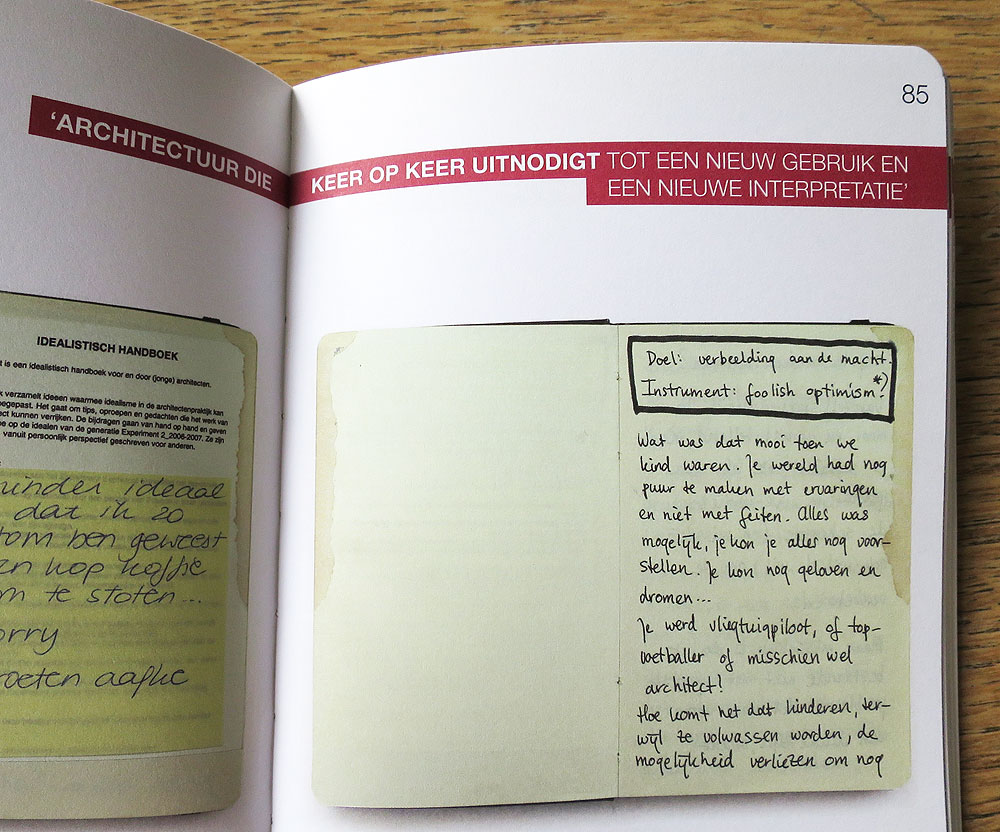 'ARCHITECTUUR DIE
IDEALISTISCH HANDBOEK
is een idealistisch handboek voor en door (jonge) architecten.
verzamelt ideeen waarmee idealisme in de architectenpraktijk kan
Het gaat om tips, oproepen en gedachten die het werk van
kunnen verrijken. De bijdragen gaan van hand op hand en geven
op de idealen van de generatie Experiment 2_2006-2007. Ze zijn
vanuit persoonlijk perspectief geschreven voor anderen.
ideaal
dat ik 20
ben geweest
kop koffie
te stoten...
aafke
85
KEER OP KEER UITNODIGT TOT EEN NIEUW GEBRUIK EN
EEN NIEUWE INTERPRETATIE'
Doel: verbeelding aan de macht.
Instrument: foolish optimism. *)
Wat was dat mooi toen we
kind waren. Je wereld had nog
puur te maken met ervaringen
en niet met feiten. Alles was
mogelijk, je kon je alles nog voor-
stellen. Je kon nog geloven en
dromen...
Je werd vliegtuigpiloot, of top-
voetballer of misschien wel
architect?
Hoe komt het dat kinderen, ter-
wijl ze volwassen worden, de
mogelijkheid verliezen om nog